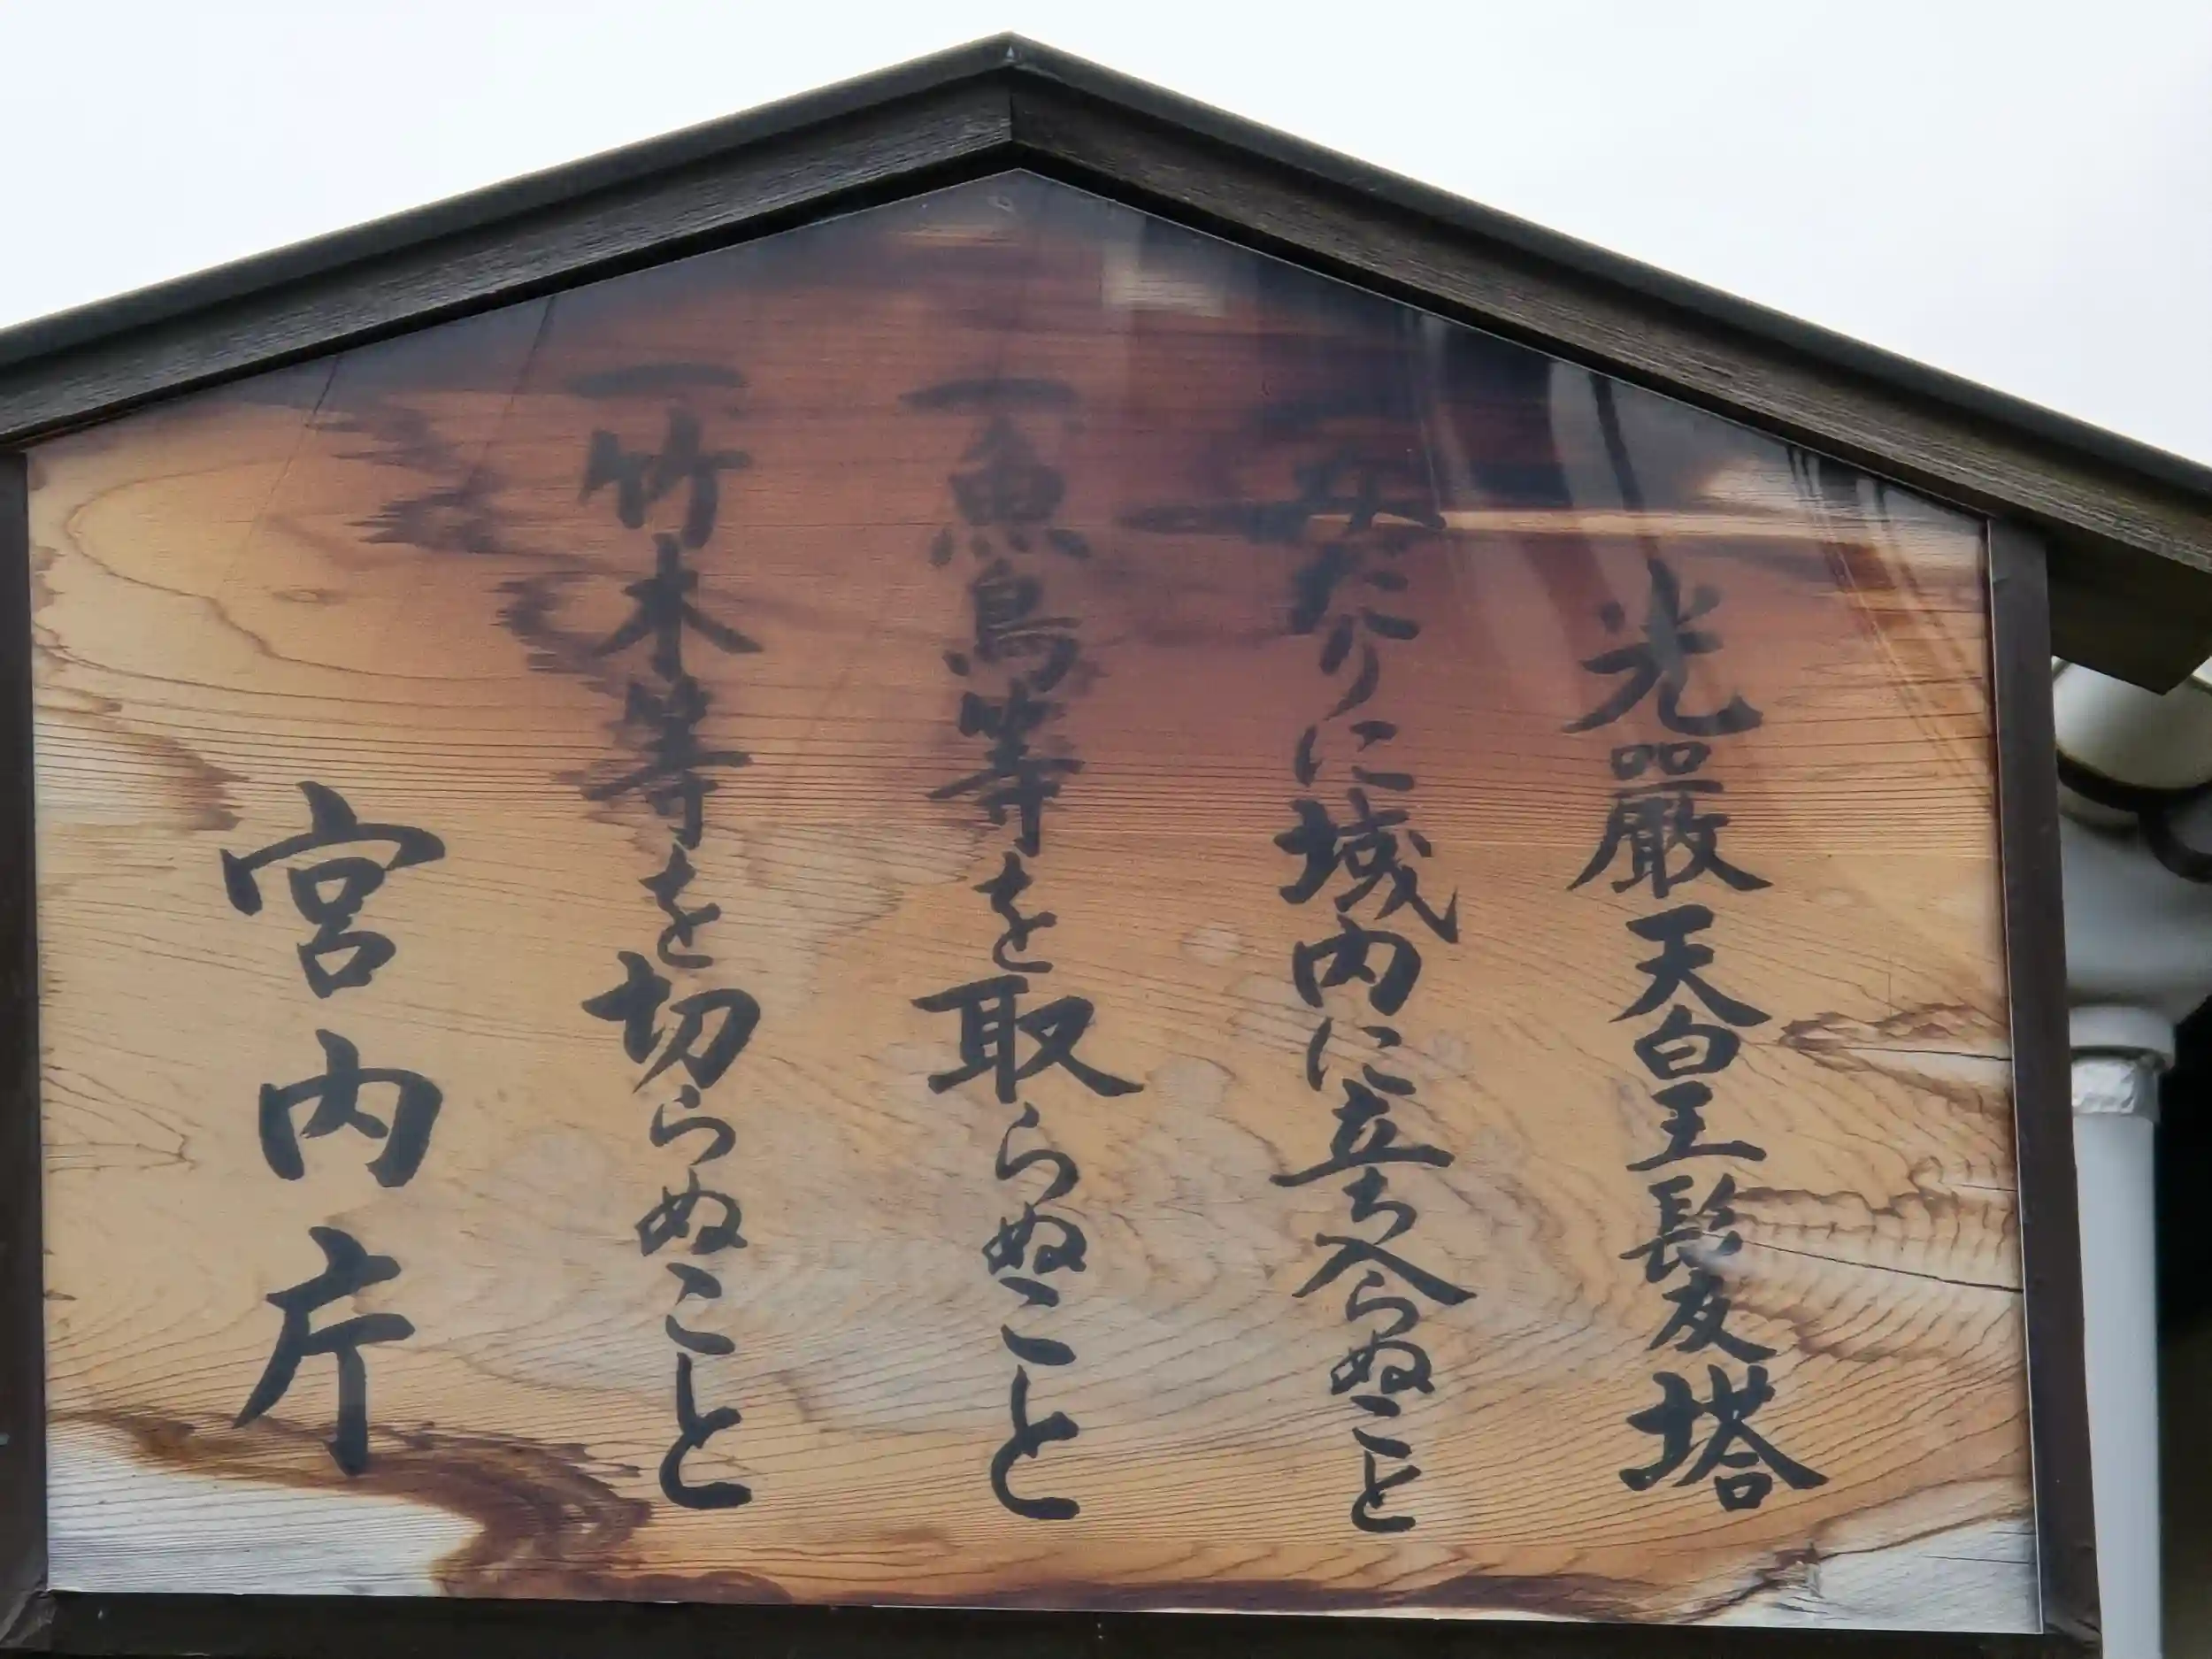 光嚴天皇髪塔
一みだりに域内に立ち入らぬこと
一魚鳥等を取らぬこと
一竹木等を切らぬこと
宮内庁